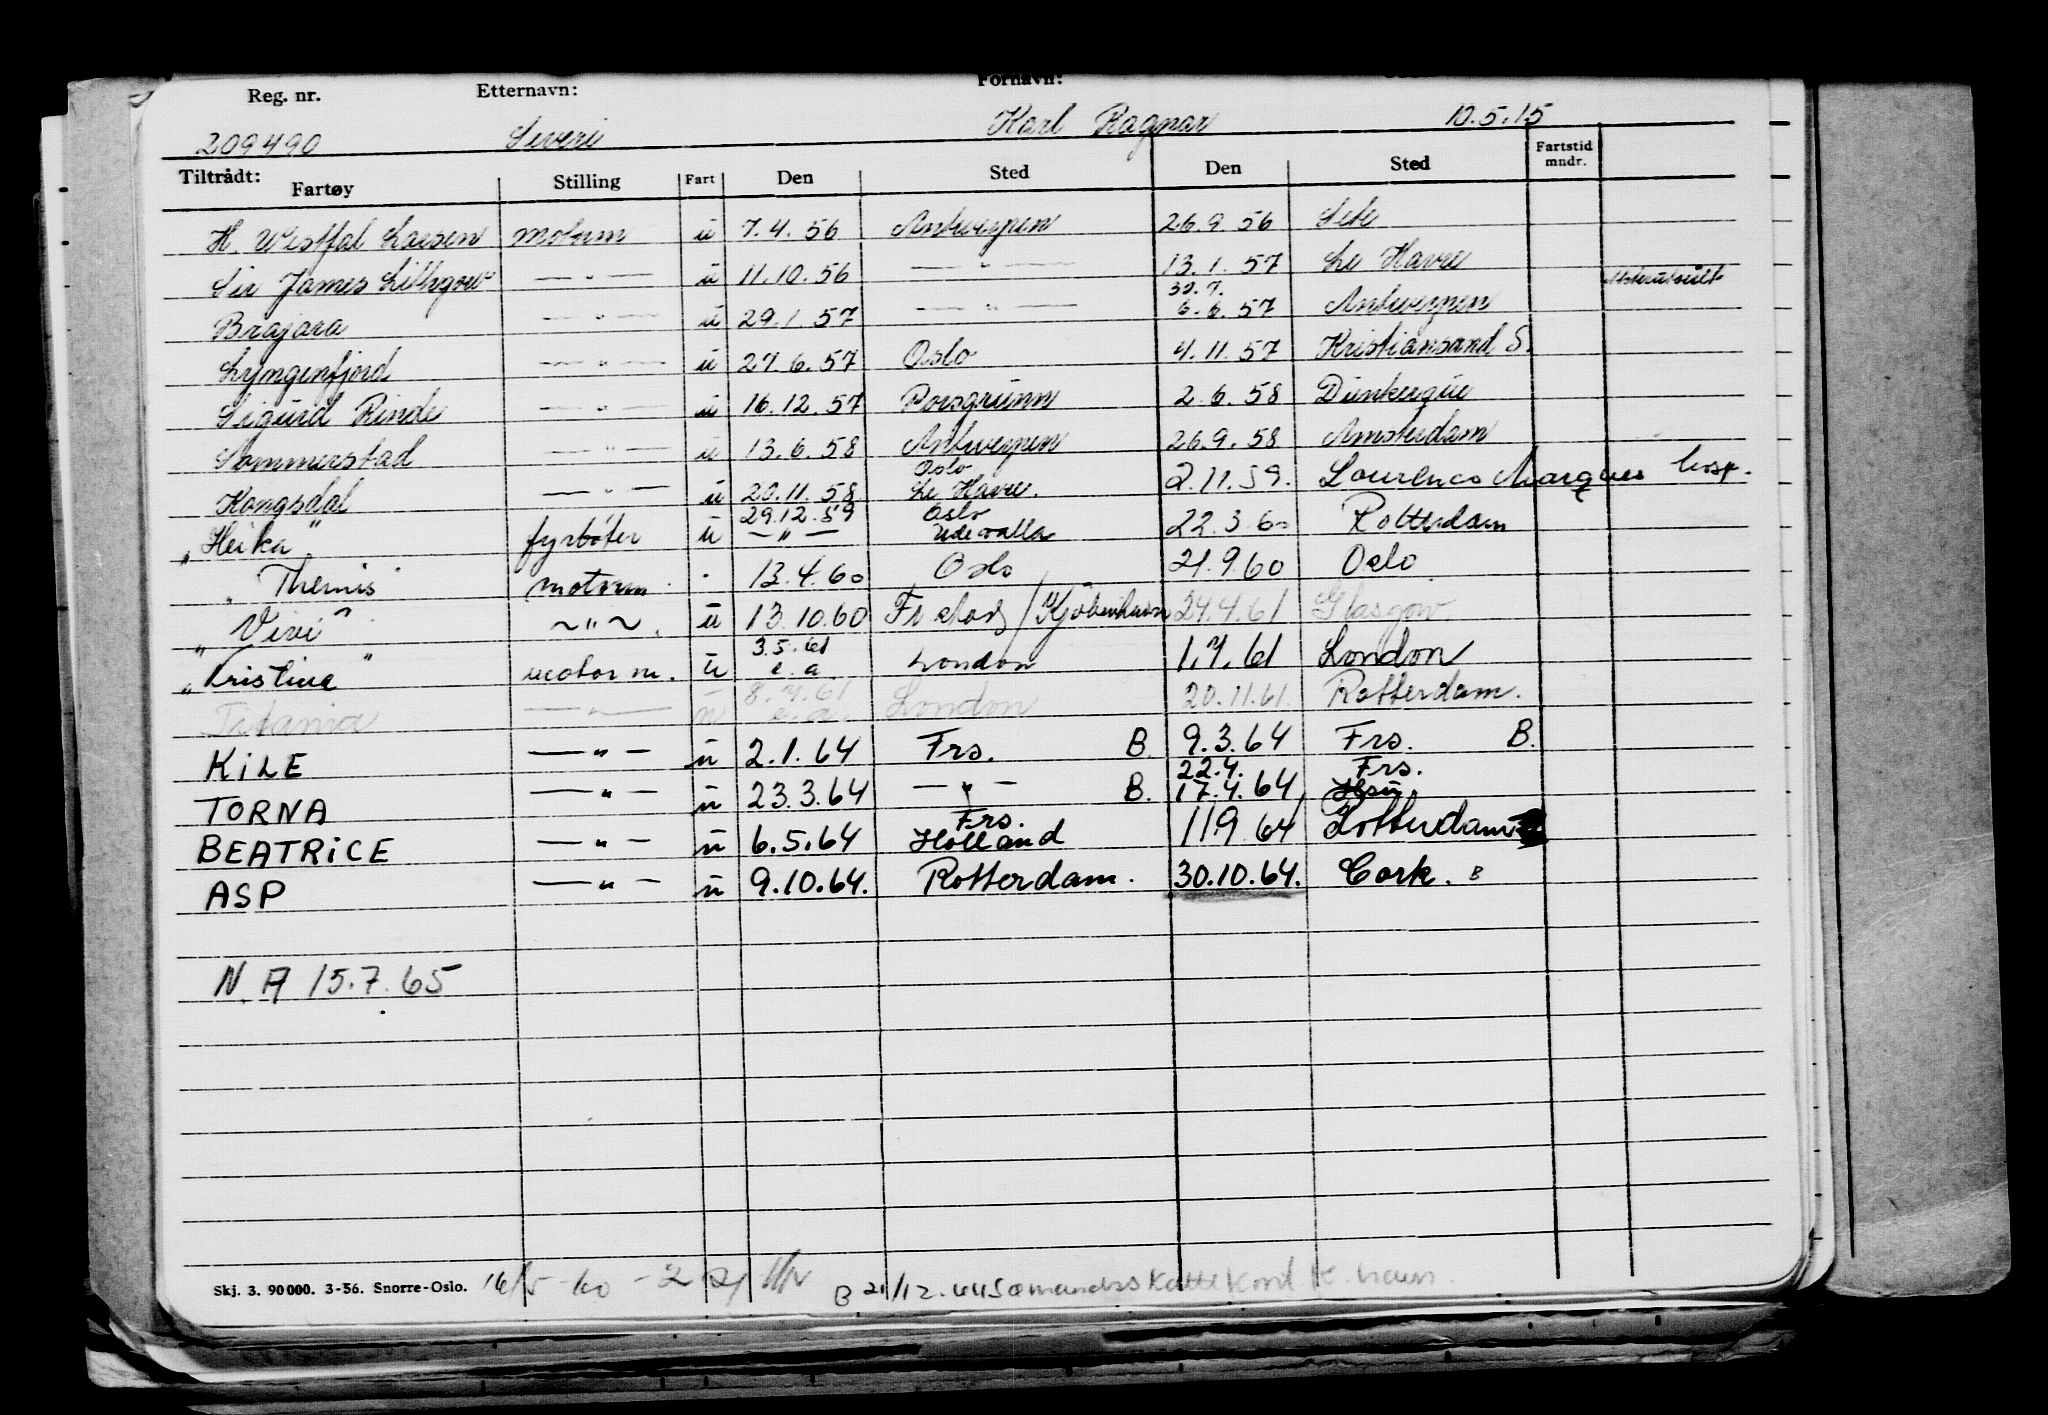 Reg. nr. Etternavn: Fornavn:
209490 Severi Karl Ragnar 10.5.15
Tiltrådt: Fartøy Stilling Fart Den Sted Den Sted Fartstid mndr.
H. Westfal Larsen motorm u 7.4.56 Antwerpen 26.9.56 Sete
Sir James Lithgow — " — u 11.10.56 — " — 13.1.57 Le Havre
30.7.
Brajara — " — u 29.1.57 — " — 6.6.57 Antwerpen
Lyngenfjord — " — u 27.6.57 Oslo 4.11.57 Kristiansand S.
Sigurd Rinde — " — u 16.12.57 Porsgrunn 2.6.58 Dunkerque
Sommerstad — " — u 13.6.58 Antwerpen 26.9.58 Amsterdam
Oslo
Kongsdal — " — u 20.11.58 Le Havre. 2.11.59. Lourenco Marques hosp.
29.12.59 Oslo
"Heika" fyrbøter u — " — Udevalla 22.3.60 Rotterdam
"Themis" motorm. " 13.4.60 Oslo 21.9.60 Oslo
"Vivi" ~ " ~. u 13.10.60 Fr.stad / Kjøbenhavn 24.4.61 Glasgow.
3.5.61
"Kristina" motor m. u e.a. London 1.7.61 London
8.7.61
Titania — " — u e.a. London 20.11.61 Rotterdam.
KiLE — " — u 2.1.64 Frs. B. 9.3.64 Frs. B.
22.4. Frs.
TORNA — " — u 23.3.64 — " — B. 17.4.64
Frs.
BEATRiCE — " — u 6.5.64 Holland 11.9.64 Rotterdam
ASP — " — u 9.10.64. Rotterdam. 30.10.64. Cork. B
N.A 15.7.65
Skj. 3. 90 000. 3-56. Snorre-Oslo. 16/5-60 - 2
B 21/12.64 Sømandsskattekont. K.havn.